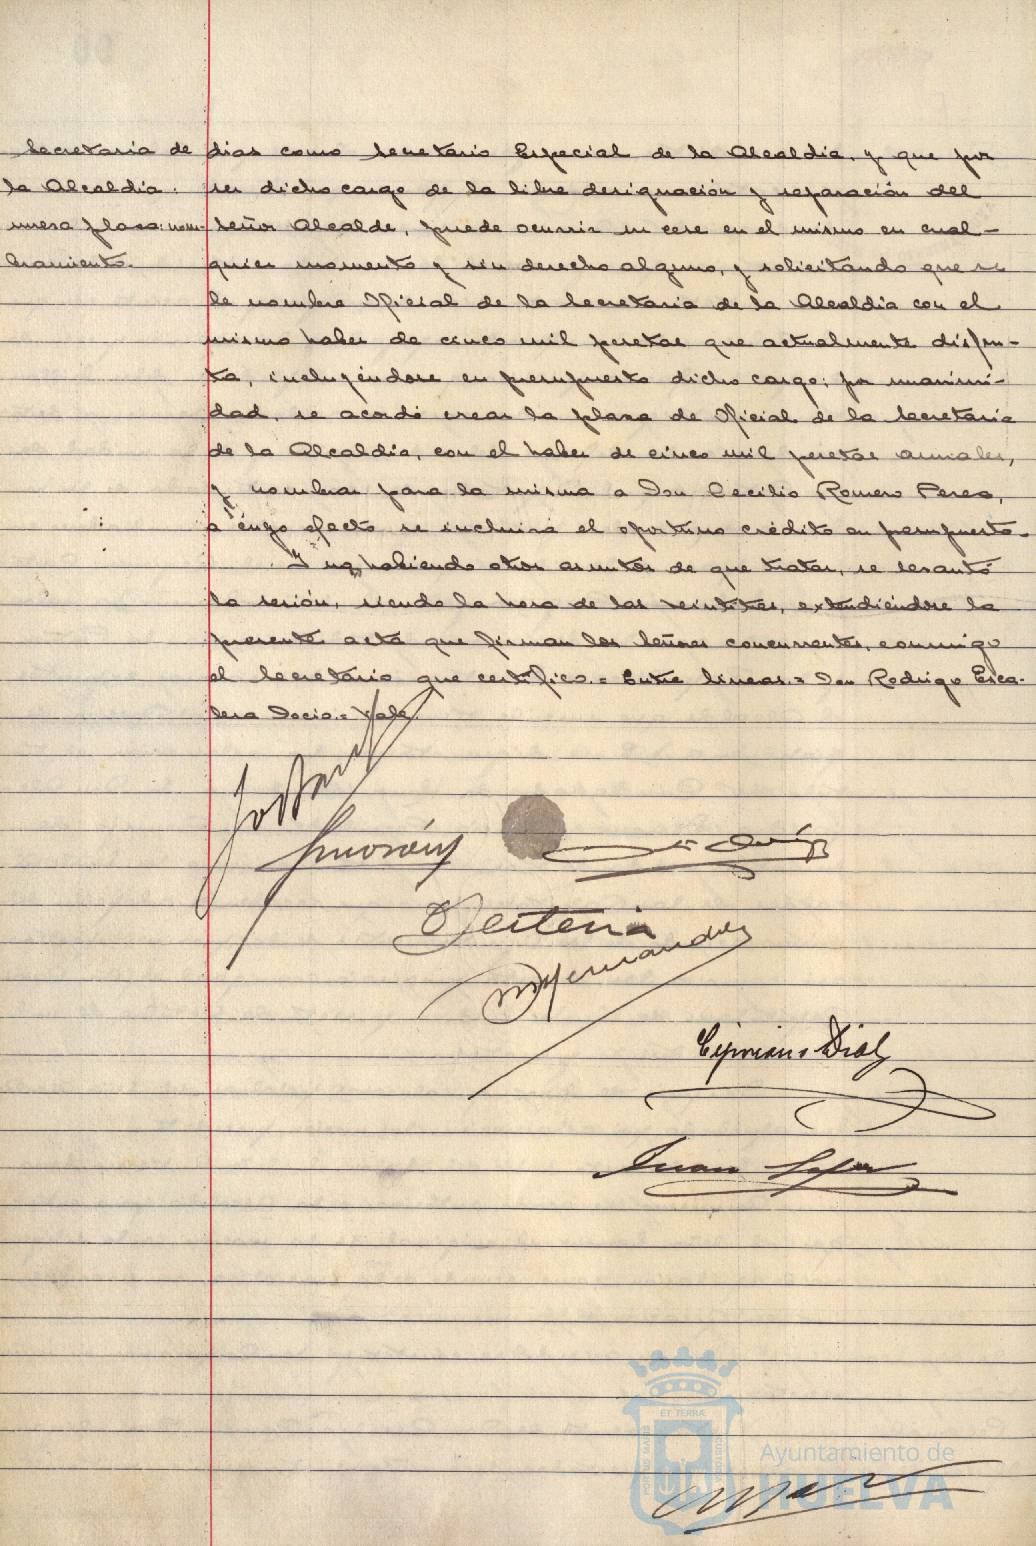 Secretaría de
la Alcaldía.
nueva plaza: nom-
bramiento.
días como Secretario Especial de la Alcaldía, y que por
ser dicho cargo de la libre designación y separación del
Señor Alcalde, puede ocurrir su cese en el mismo en cual-
quier momento y sin derecho alguno, y solicitando que se
le nombre Oficial de la Secretaría de la Alcaldía con el
mismo haber de cinco mil pesetas que actualmente disfru-
ta, incluyéndose en presupuesto dicho cargo; por unanimi-
dad, se acordó crear la plaza de Oficial de la Secretaría
de la Alcaldía, con el haber de cinco mil pesetas anuales,
y nombrar para la misma a Don Cecilio Romero Perea,
a cuyo efecto se incluirá el oportuno crédito en presupuesto.
Y no habiendo otros asuntos de que tratar, se levantó
la sesión, siendo la hora de las veintitres, extendiéndose la
presente acta que firman los Señores concurrentes, conmigo
el Secretario que certifico.= Entre lineas.= Don Rodrigo Esca-
lera Socio.= Vale.
Hernández
Cipriano Díaz
Juan
ET TERRÆ
PORTUS MARIS
CUSTODIA
Ayuntamiento de
HUELVA